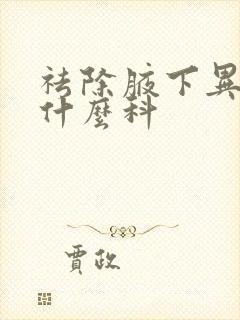 祛除腋下異
什麼科
賈政